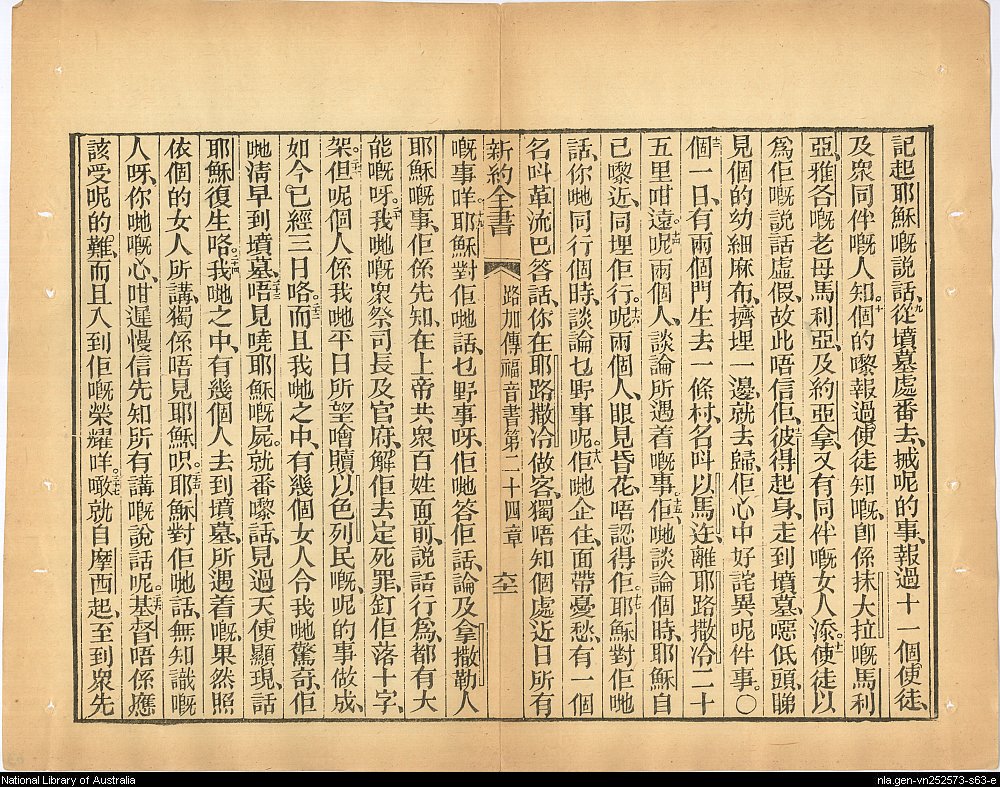 記起耶穌嘅說話、九從墳墓處番去、搣呢的事、報過十一個使徒、
及衆同伴嘅人知、十個的嚟報過使徒知嘅、卽係抹大拉嘅馬利
亞、雅各嘅老母馬利亞、及約亞拿、又有同伴嘅女人添、十一使徒以
爲佢嘅說話虛假、故此唔信佢、十二彼得起身、走到墳墓、噁低頭、睇
見個的幼細麻布、擠埋一邊、就去歸、佢心中好詫異呢件事。〇
十三個一日、有兩個門生去一條村、名呌以馬迕、離耶路撒冷二十
五里咁遠。十四呢兩個人、談論所遇着嘅事。十五佢哋談論個時、耶穌自
己嚟近、同埋佢行。十六呢兩個人、眼見昏花、唔認得佢。十七耶穌對佢哋
話、你哋同行個時、談論乜野事呢。十八佢哋企住、面帶憂愁、有一個
名呌革流巴答話、你在耶路撒冷做客、獨唔知個處近日所有
新約全書 路加傳福音書第二十四章 六十一
嘅事咩。十九耶穌對佢哋話、乜野事呀、佢哋答佢話、論及拿撒勒人
耶穌嘅事、佢係先知、在上帝共衆百姓面前、說話行爲、都有大
能嘅呀。二十我哋嘅衆祭司長及官府、解佢去定死罪、釘佢落十字
架。二十一但呢個人係我哋平日所望噲贖以色列民嘅、呢的事做成、
如今已經三日咯。二十二而且我哋之中、有幾個女人令我哋驚奇、佢
哋淸早到墳墓、二十三唔見嘵耶穌嘅屍。就番嚟話、見過天使顯現、話
耶穌復生咯。二十四我哋之中、有幾個人去到墳墓、所遇着嘅、果然照
依個的女人所講、獨係唔見耶穌呮。二十五耶穌對佢哋話、無知識嘅
人呀、你哋嘅心、咁遲慢信先知所有講嘅說話呢。二十六基督唔係應
該受呢的難、而且入到佢嘅榮耀咩。二十七噉就自摩西起、至到衆先
National Library of Australia
nla.gen-vn252573-s63-e